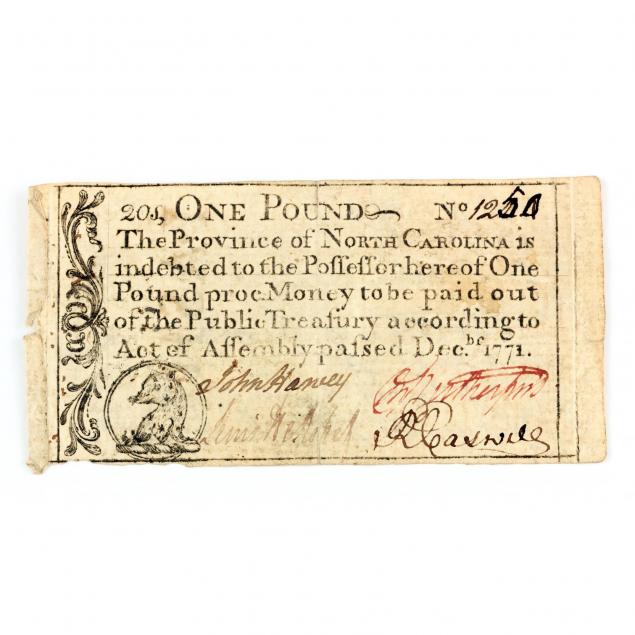 20s, ONE POUND No 12
The Province of NORTH CAROLINA is
indebted to the Poſſeſſor hereof One
Pound proc. Money to be paid out
of the Public Treaſury according to
Act of Aſſembly paſsed Dec.br 1771.
John Harvey
Rutherfurd
Lewis
R Caswell